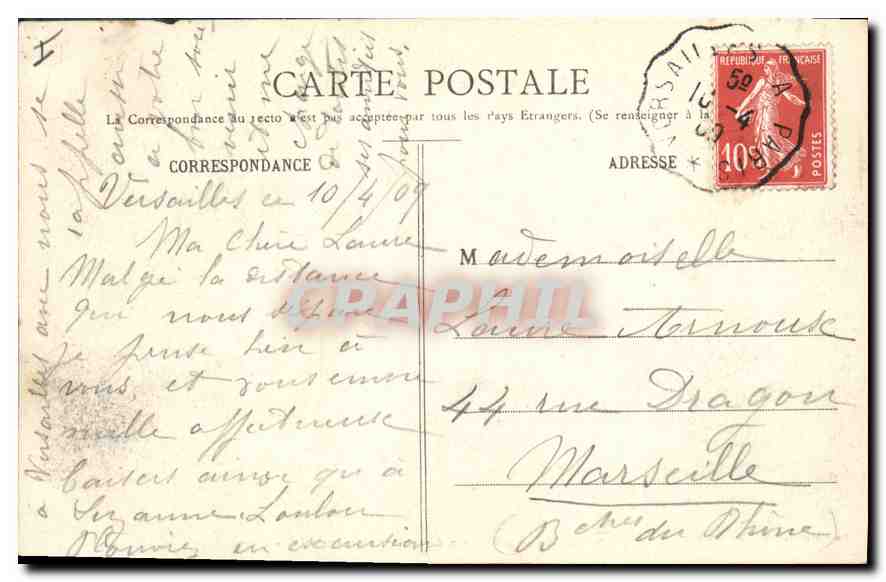 CARTE POSTALE
La Correspondance au recto n'est pas acceptée par tous les Pays Etrangers. (Se renseigner à la
CORRESPONDANCE
ADRESSE
Versailles ce 10/4/09
Ma Chère Laure
Malgré la distance
qui nous sépare
je pense bien à
vous, et vous envoie
mille affectueuse
baisers ainsi qu'à
Suzanne Loulou
en excursion
à Versailles avec nous se
rappelle
à votre
bon
Mademoiselle
Laure Arnoux
44 rue Dragon
Marseille
(Bches du Rhône)
VERSAILLES A PARIS
REPUBLIQUE FRANÇAISE
10c
POSTES
CPAPHIL